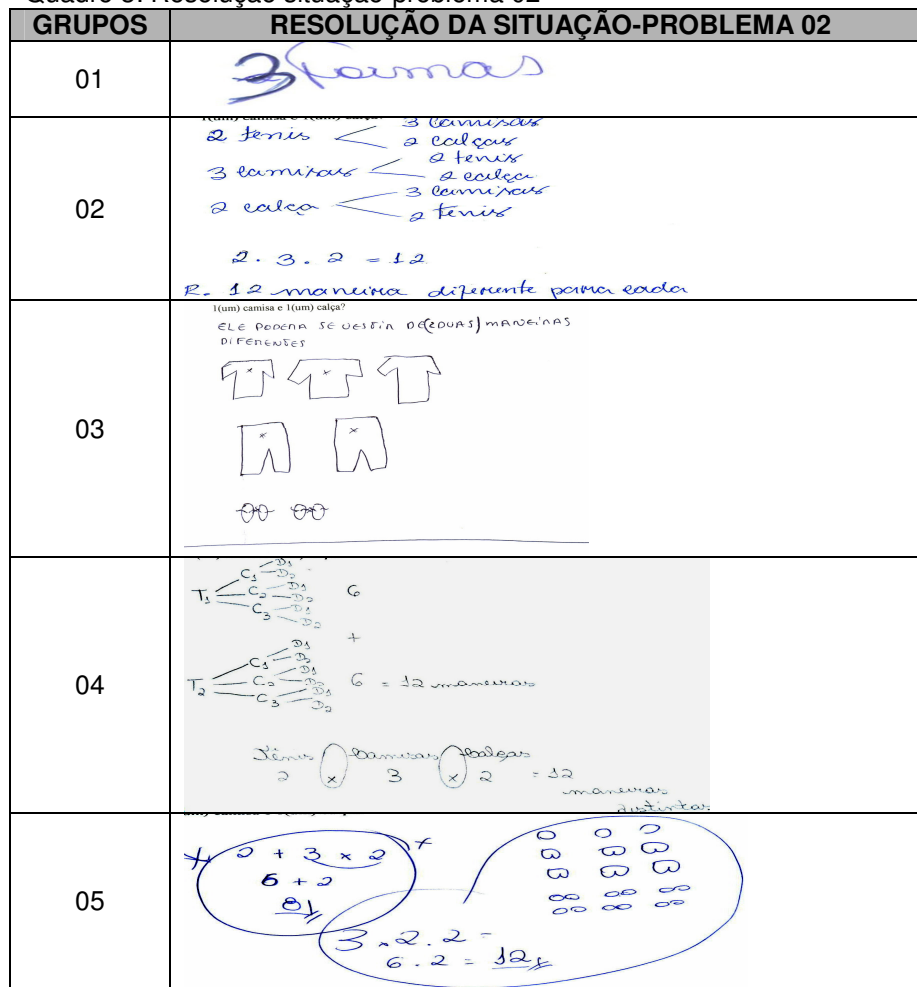 Quadro 3: Resolução situação-problema 02
GRUPOS RESOLUÇÃO DA SITUAÇÃO-PROBLEMA 02
01
3 Formas
02
1(um) camisa e 1(um) calça?
2 tenis 3 camisas
2 calças
3 camisas 2 tenis
2 calça
2 calça 3 camisas
2 tenis
2 . 3 . 2 = 12
R. 12 maneira diferente para cada
03
1(um) camisa e 1(um) calça?
ELE PODERA SE VESTIR DE (2 DUAS) MANEIRAS
DIFERENTES
04
T1 C1 D1
D2
C2 D1
D2
C3 D1
D2
6
+
T2 C1 D1
D2
C2 D1
D2
C3 D1
D2
6 = 12 maneiras
Tênis Camisas Calças
2 x 3 x 2 = 12
maneiras
distintas
05
2 + 3 x 2
6 + 2
8
3 . 2 . 2 =
6 . 2 = 12